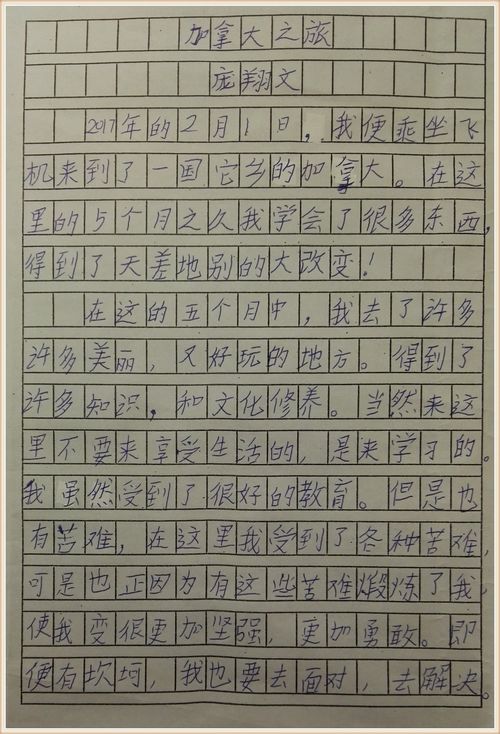 加拿大之旅
庞翔文
2017年的2月1日，我便乘坐飞
机来到了一国它乡的加拿大。在这
里的5个月之久我学会了很多东西，
得到了天差地别的大改变！
在这的五个月中，我去了许多
许多美丽，又好玩的地方。得到了
许多知识，和文化修养。当然来这
里不要来享受生活的，是来学习的。
我虽然受到了很好的教育。但是也
有苦难，在这里我受到了各种苦难，
可是也正因为有这些苦难煅炼了我，
使我变很更加坚强，更加勇敢。即
便有坎坷，我也要去面对，去解决。